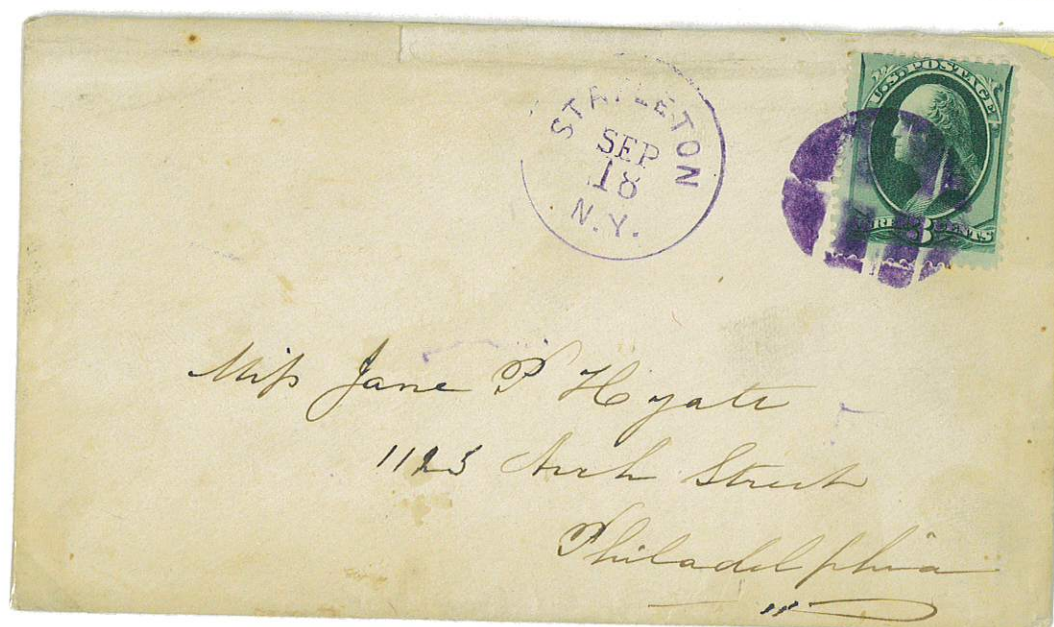 STAPLETON
SEP
18
N.Y.
U.S. POSTAGE
THREE 3 CENTS
Miss Jane P Hyatt
1125 Arch Street
Philadelphia